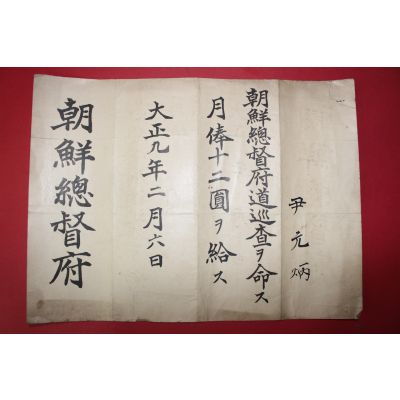 尹元炳
朝鮮總督府道巡査ヲ命ス
月俸十二圓ヲ給ス
大正九年二月六日
朝鮮總督府